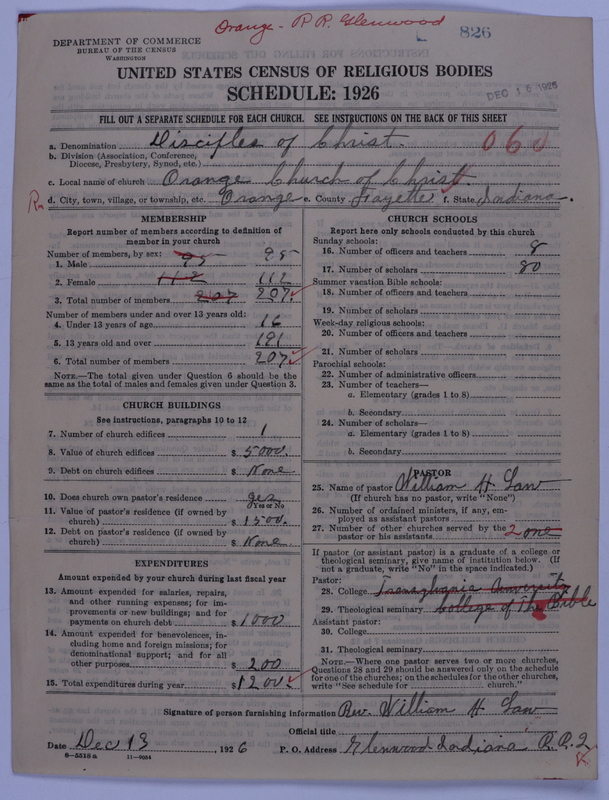 Orange - R R. Glenwood
L 826
DEPARTMENT OF COMMERCE
BUREAU OF THE CENSUS
WASHINGTON
UNITED STATES CENSUS OF RELIGIOUS BODIES
SCHEDULE: 1926
DEC 16 1926
FILL OUT A SEPARATE SCHEDULE FOR EACH CHURCH. SEE INSTRUCTIONS ON THE BACK OF THIS SHEET
a. Denomination Disciples of Christ. 060
b. Division (Association, Conference,
Diocese, Presbytery, Synod, etc.)
c. Local name of church Orange Church of Christ
d. City, town, village, or township, etc. Orange e. County Fayette f. State Indiana.
MEMBERSHIP
Report number of members according to definition of
member in your church
Number of members, by sex:
1. Male 95 95
2. Female 112 112
3. Total number of members 207 207
Number of members under and over 13 years old:
4. Under 13 years of age 16
5. 13 years old and over 191
6. Total number of members 207
NOTE.—The total given under Question 6 should be the
same as the total of males and females given under Question 3.
CHURCH BUILDINGS
See instructions, paragraphs 10 to 12
7. Number of church edifices 1
8. Value of church edifices $ 5000.
9. Debt on church edifices $ None
10. Does church own pastor's residence yes
Yes or No
11. Value of pastor's residence (if owned by
church) $ 1500.
12. Debt on pastor's residence (if owned by
church) $ None.
EXPENDITURES
Amount expended by your church during last fiscal year
13. Amount expended for salaries, repairs,
and other running expenses; for im-
provements or new buildings; and for
payments on church debt $ 1000
14. Amount expended for benevolences, in-
cluding home and foreign missions; for
denominational support; and for all
other purposes $ 200
15. Total expenditures during year $ 1200.
CHURCH SCHOOLS
Report here only schools conducted by this church
Sunday schools:
16. Number of officers and teachers 8
17. Number of scholars 80
Summer vacation Bible schools:
18. Number of officers and teachers
19. Number of scholars
Week-day religious schools:
20. Number of officers and teachers
21. Number of scholars
Parochial schools:
22. Number of administrative officers
23. Number of teachers—
a. Elementary (grades 1 to 8)
b. Secondary
24. Number of scholars—
a. Elementary (grades 1 to 8)
b. Secondary
PASTOR
25. Name of pastor William H. Law
(If church has no pastor, write "None")
26. Number of ordained ministers, if any, em-
ployed as assistant pastors
27. Number of other churches served by the
pastor or his assistants 2 one
If pastor (or assistant pastor) is a graduate of a college or
theological seminary, give name of institution below. (If
not a graduate, write "No" in the space indicated.)
Pastor:
28. College Transylvania University
29. Theological seminary College of The Bible
Assistant pastor:
30. College
31. Theological seminary
NOTE.—Where one pastor serves two or more churches,
Questions 28 and 29 should be answered only on the schedule
for one of the churches; on the schedules for the other churches,
write "See schedule for church."
Signature of person furnishing information Rev. William H. Law
Official title
Date Dec 13, 1926 P. O. Address Glenwood Indiana R.R.2
8-5518a 11-9034